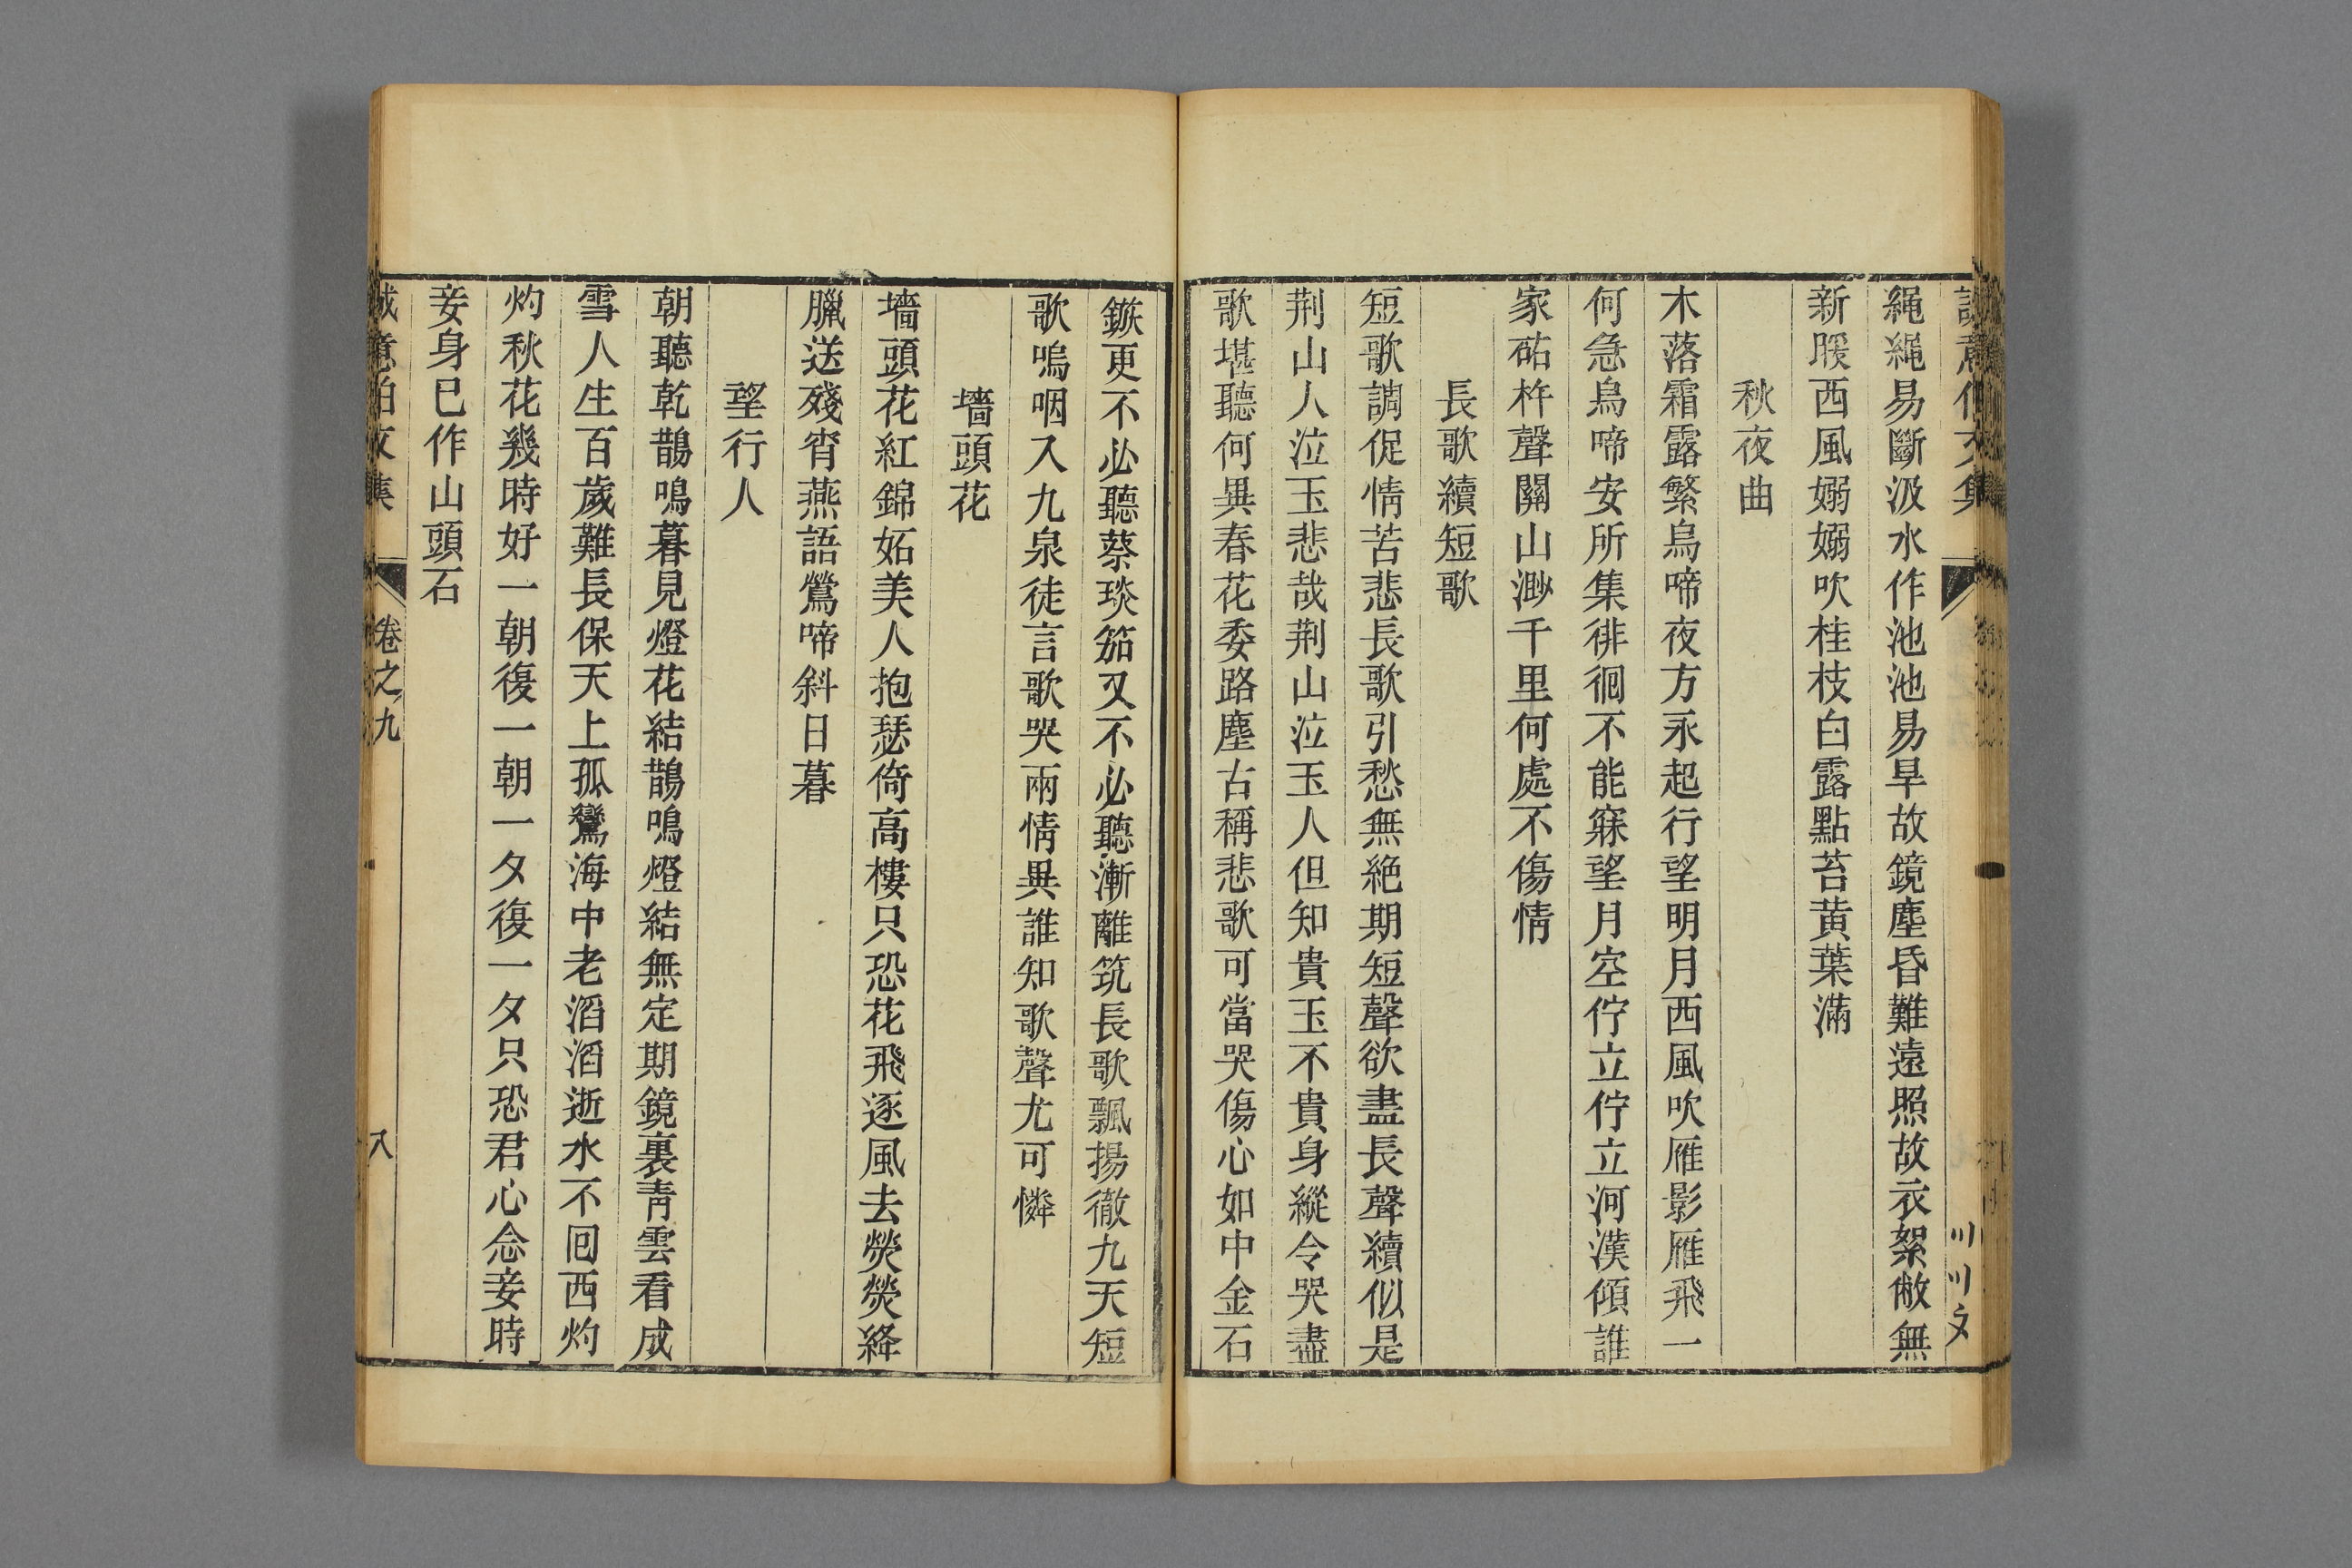 繩繩易斷汲水作池池易旱故鏡塵昏難遠照故衣絮敝無
新暖西風嫋嫋吹桂枝白露點苔黄葉滿
秋夜曲
木落霜露繁烏啼夜方永起行望明月西風吹雁影雁飛一
何急烏啼安所集徘徊不能寐望月空佇立佇立河漢傾誰
家砧杵聲關山渺千里何處不傷情
長歌續短歌
短歌調促情苦悲長歌引愁無絶期短聲欲盡長聲續似是
荆山人泣玉悲哉荆山泣玉人但知貴玉不貴身縱令哭盡
歌堪聽何異春花委路塵古稱悲歌可當哭傷心如中金石
鏃更不必聽蔡琰笳又不必聽漸離筑長歌飄揚徹九天短
歌嗚咽入九泉徒言歌哭兩情異誰知歌聲尤可憐
墻頭花
墻頭花紅錦妬美人抱瑟倚高樓只恐花飛逐風去熒熒絳
臘送殘宵燕語鶯啼斜日暮
望行人
朝聽乾鵲鳴暮見燈花結鵲鳴燈結無定期鏡裏靑雲看成
雪人生百歲難長保天上孤鸞海中老滔滔逝水不囘西灼
灼秋花幾時好一朝復一朝一夕復一夕只恐君心念妾時
妾身已作山頭石
誠意伯文集 卷之九 八